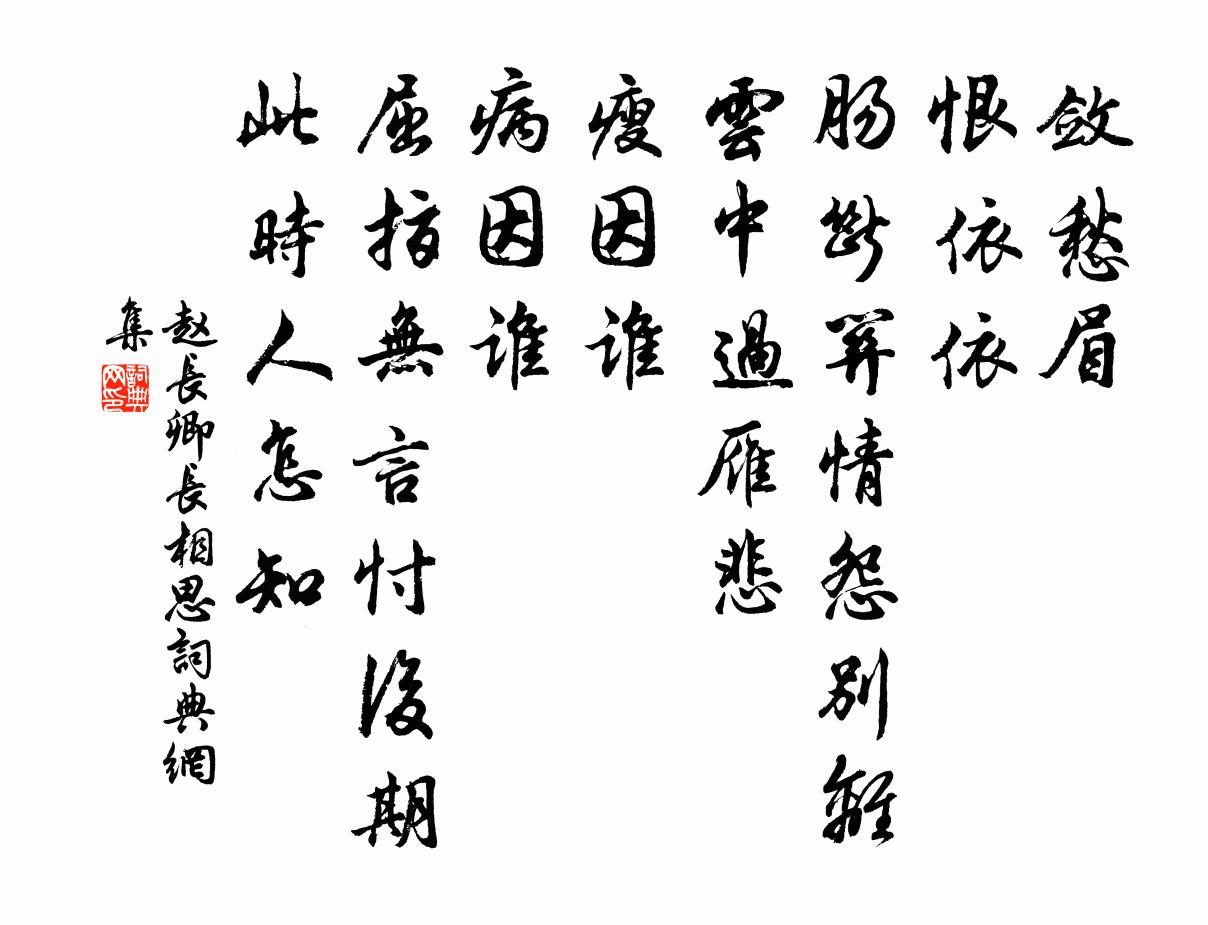 斂愁眉
恨依依
肠斷關情怨別離
雲中過雁悲
瘦因誰
病因誰
屈指無言忖後期
此時人怎知
赵長卿長相思詞典網
集
詞典网印